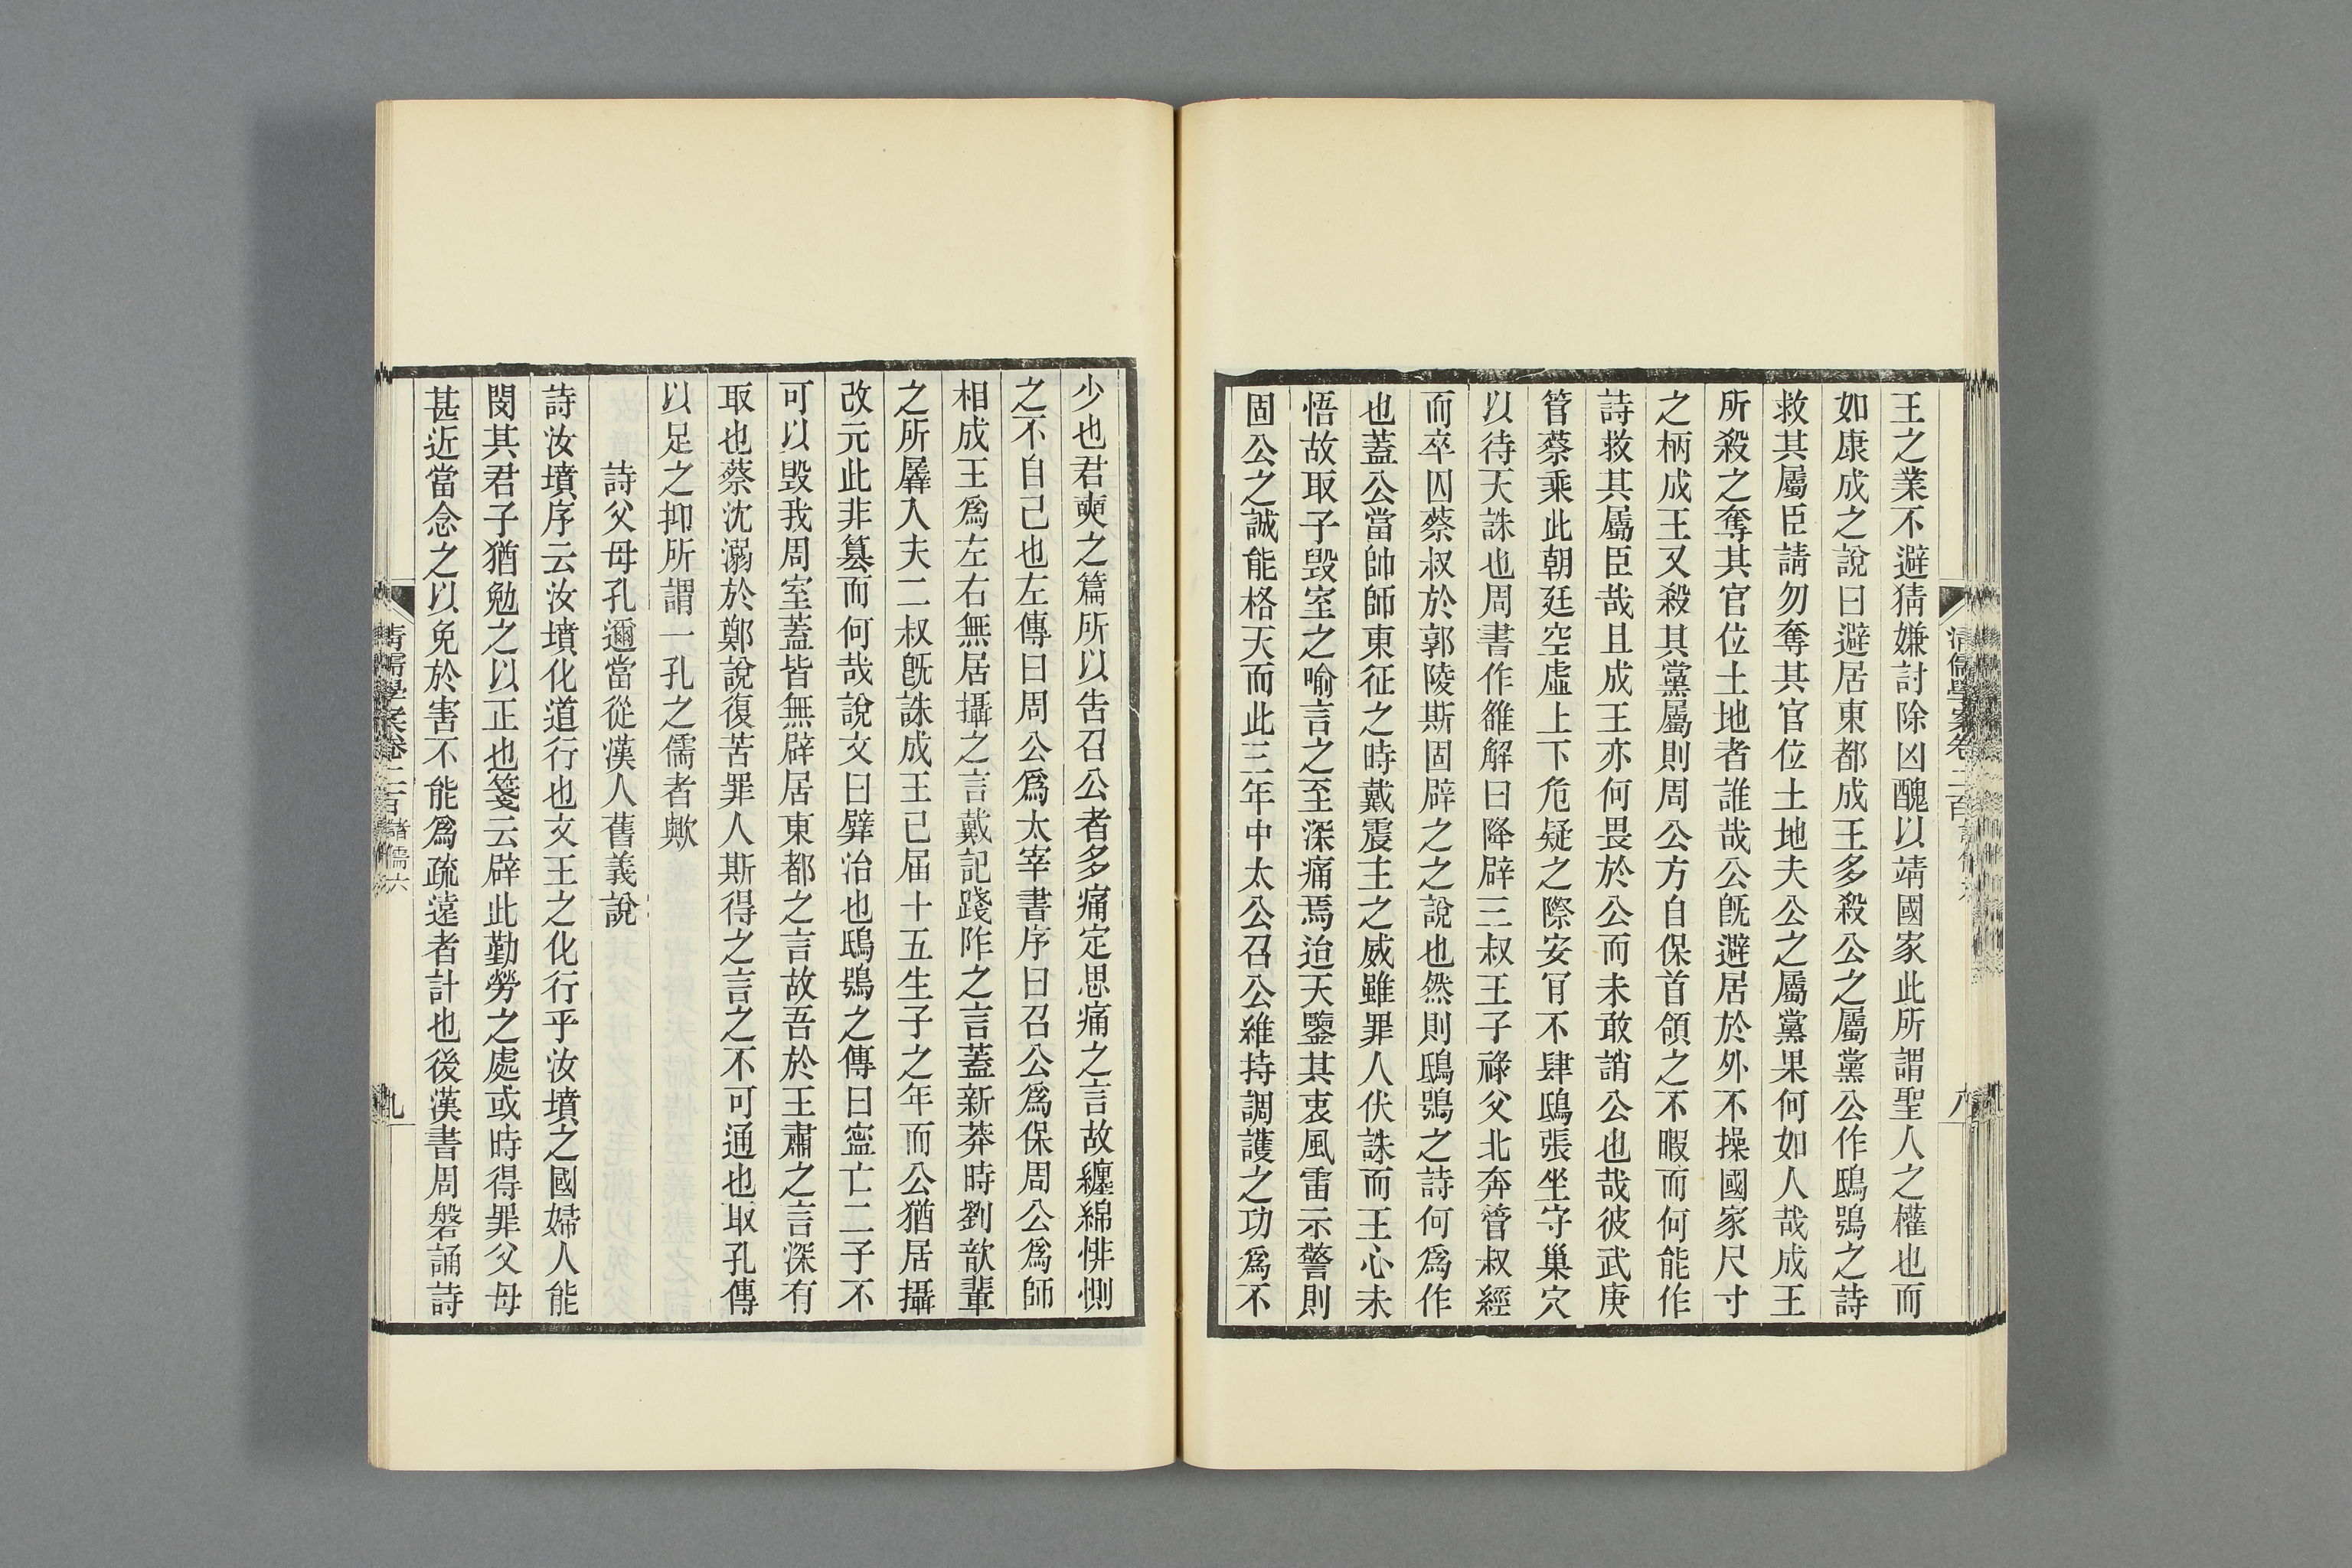 清儒學案卷二百
八
王之業不避猜嫌討除凶醜以靖國家此所謂聖人之權也而
如康成之說曰避居東都成王多殺公之屬黨公作鴟鴞之詩
救其屬臣請勿奪其官位土地夫公之屬黨果何如人哉成王
所殺之奪其官位土地者誰哉公旣避居於外不操國家尺寸
之柄成王又殺其黨屬則周公方自保首領之不暇而何能作
詩救其屬臣哉且成王亦何畏於公而未敢誚公也哉彼武庚
管蔡乘此朝廷空虛上下危疑之際安肎不肆鴟張坐守巢穴
以待天誅也周書作雒解曰降辟三叔王子祿父北奔管叔經
而卒囚蔡叔於郭陵斯固辟之之說也然則鴟鴞之詩何爲作
也蓋公當帥師東征之時戴震主之威雖罪人伏誅而王心未
悟故取子毀室之喻言之至深痛焉迨天鑒其衷風雷示警則
固公之誠能格天而此三年中太公召公維持調護之功爲不
少也君奭之篇所以告召公者多痛定思痛之言故纏綿悱惻
之不自己也左傳曰周公爲太宰書序曰召公爲保周公爲師
相成王爲左右無居攝之言戴記踐阼之言蓋新莽時劉歆輩
之所羼入夫二叔旣誅成王已屆十五生子之年而公猶居攝
改元此非篡而何哉說文曰㢸治也鴟鴞之傳曰寍亡二子不
可以毀我周室蓋皆無辟居東都之言故吾於王肅之言深有
取也蔡沈溺於鄭說復苦罪人斯得之言之不可通也取孔傳
以足之抑所謂一孔之儒者歟
詩父母孔邇當從漢人舊義說
詩汝墳序云汝墳化道行也文王之化行乎汝墳之國婦人能
閔其君子猶勉之以正也箋云辟此勤勞之處或時得罪父母
甚近當念之以免於害不能爲疏遠者計也後漢書周磐誦詩
清儒學案卷二百 諸儒六
九